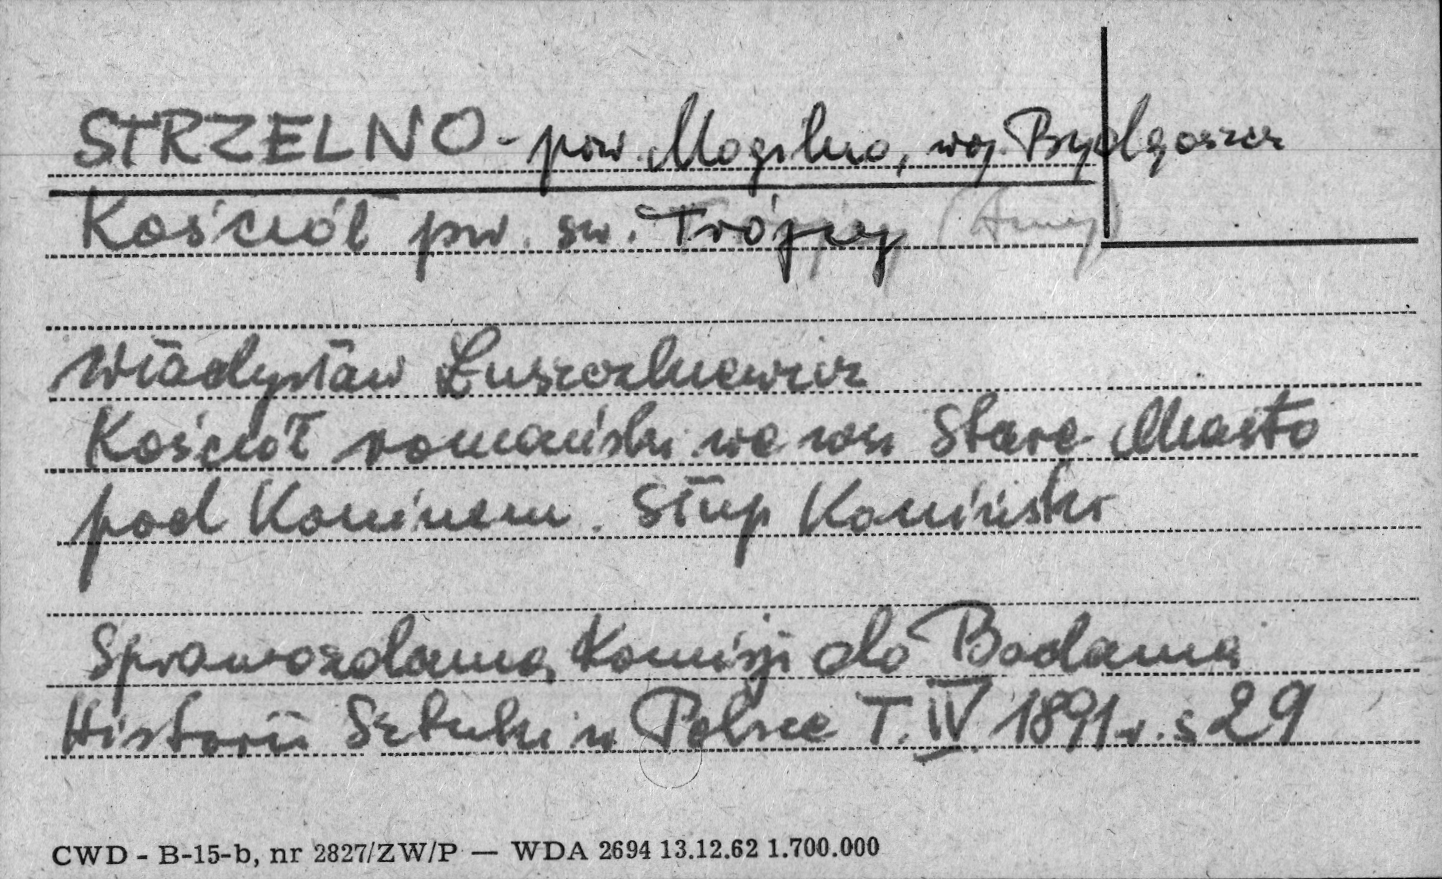 STRZELNO - pow. Mogilno, woj. Bydgoszcz
Kościół pw. św. Trójcy (Anny)
Władysław Łuszczkiewicz
Kościół romański we wsi Stare Miasto
pod Koninem. Słup Koniński
Sprawozdania Komisji do Badania
Historii Sztuki w Polsce T. IV 1891 r. s 29
CWD - B-15-b, nr 2827/ZW/P — WDA 2694 13.12.62 1.700.000